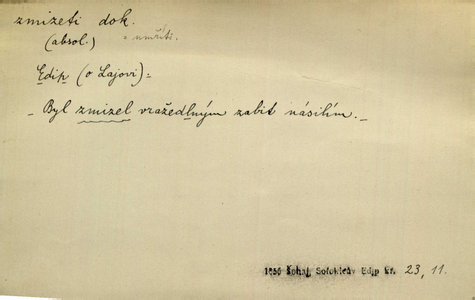 zmizeti dok.
(absol.) = umříti.
Edip (o Lajovi):
– Byl zmizel vražedlným zabit násilím. –
1856 Sofokleův Edip Kr. 23, 11.